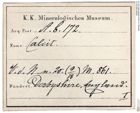 K. K. Mineralogisches Museum.
Acq. Post A. b. 172.
Name Calcit.
V. d. N. m. No. (2) M. 861.
Fundort Derbyshire, England.